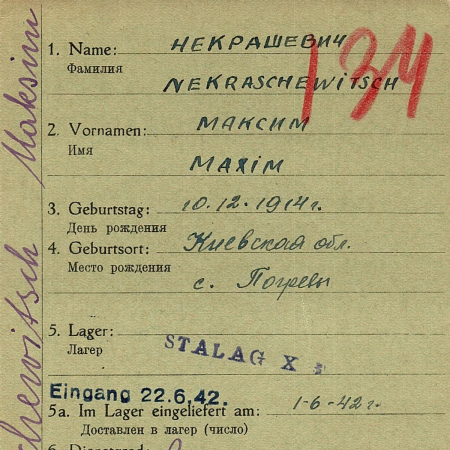 1. Name: НЕКРАШЕВИЧ
Фамилия
NEKRASCHEWITSCH
134
2. Vornamen: МАКСИМ
Имя
MAXIM
3. Geburtstag: 10.12.1914г.
День рождения
4. Geburtsort: Киевская обл.
Место рождения
с. Погребы
5. Lager:
Лагерь
STALAG X
Eingang 22.6.42.
5a. Im Lager eingeliefert am: 1-6-42г.
Доставлен в лагерь (число)
6. Dienstgrad:
chewitsch Maksim